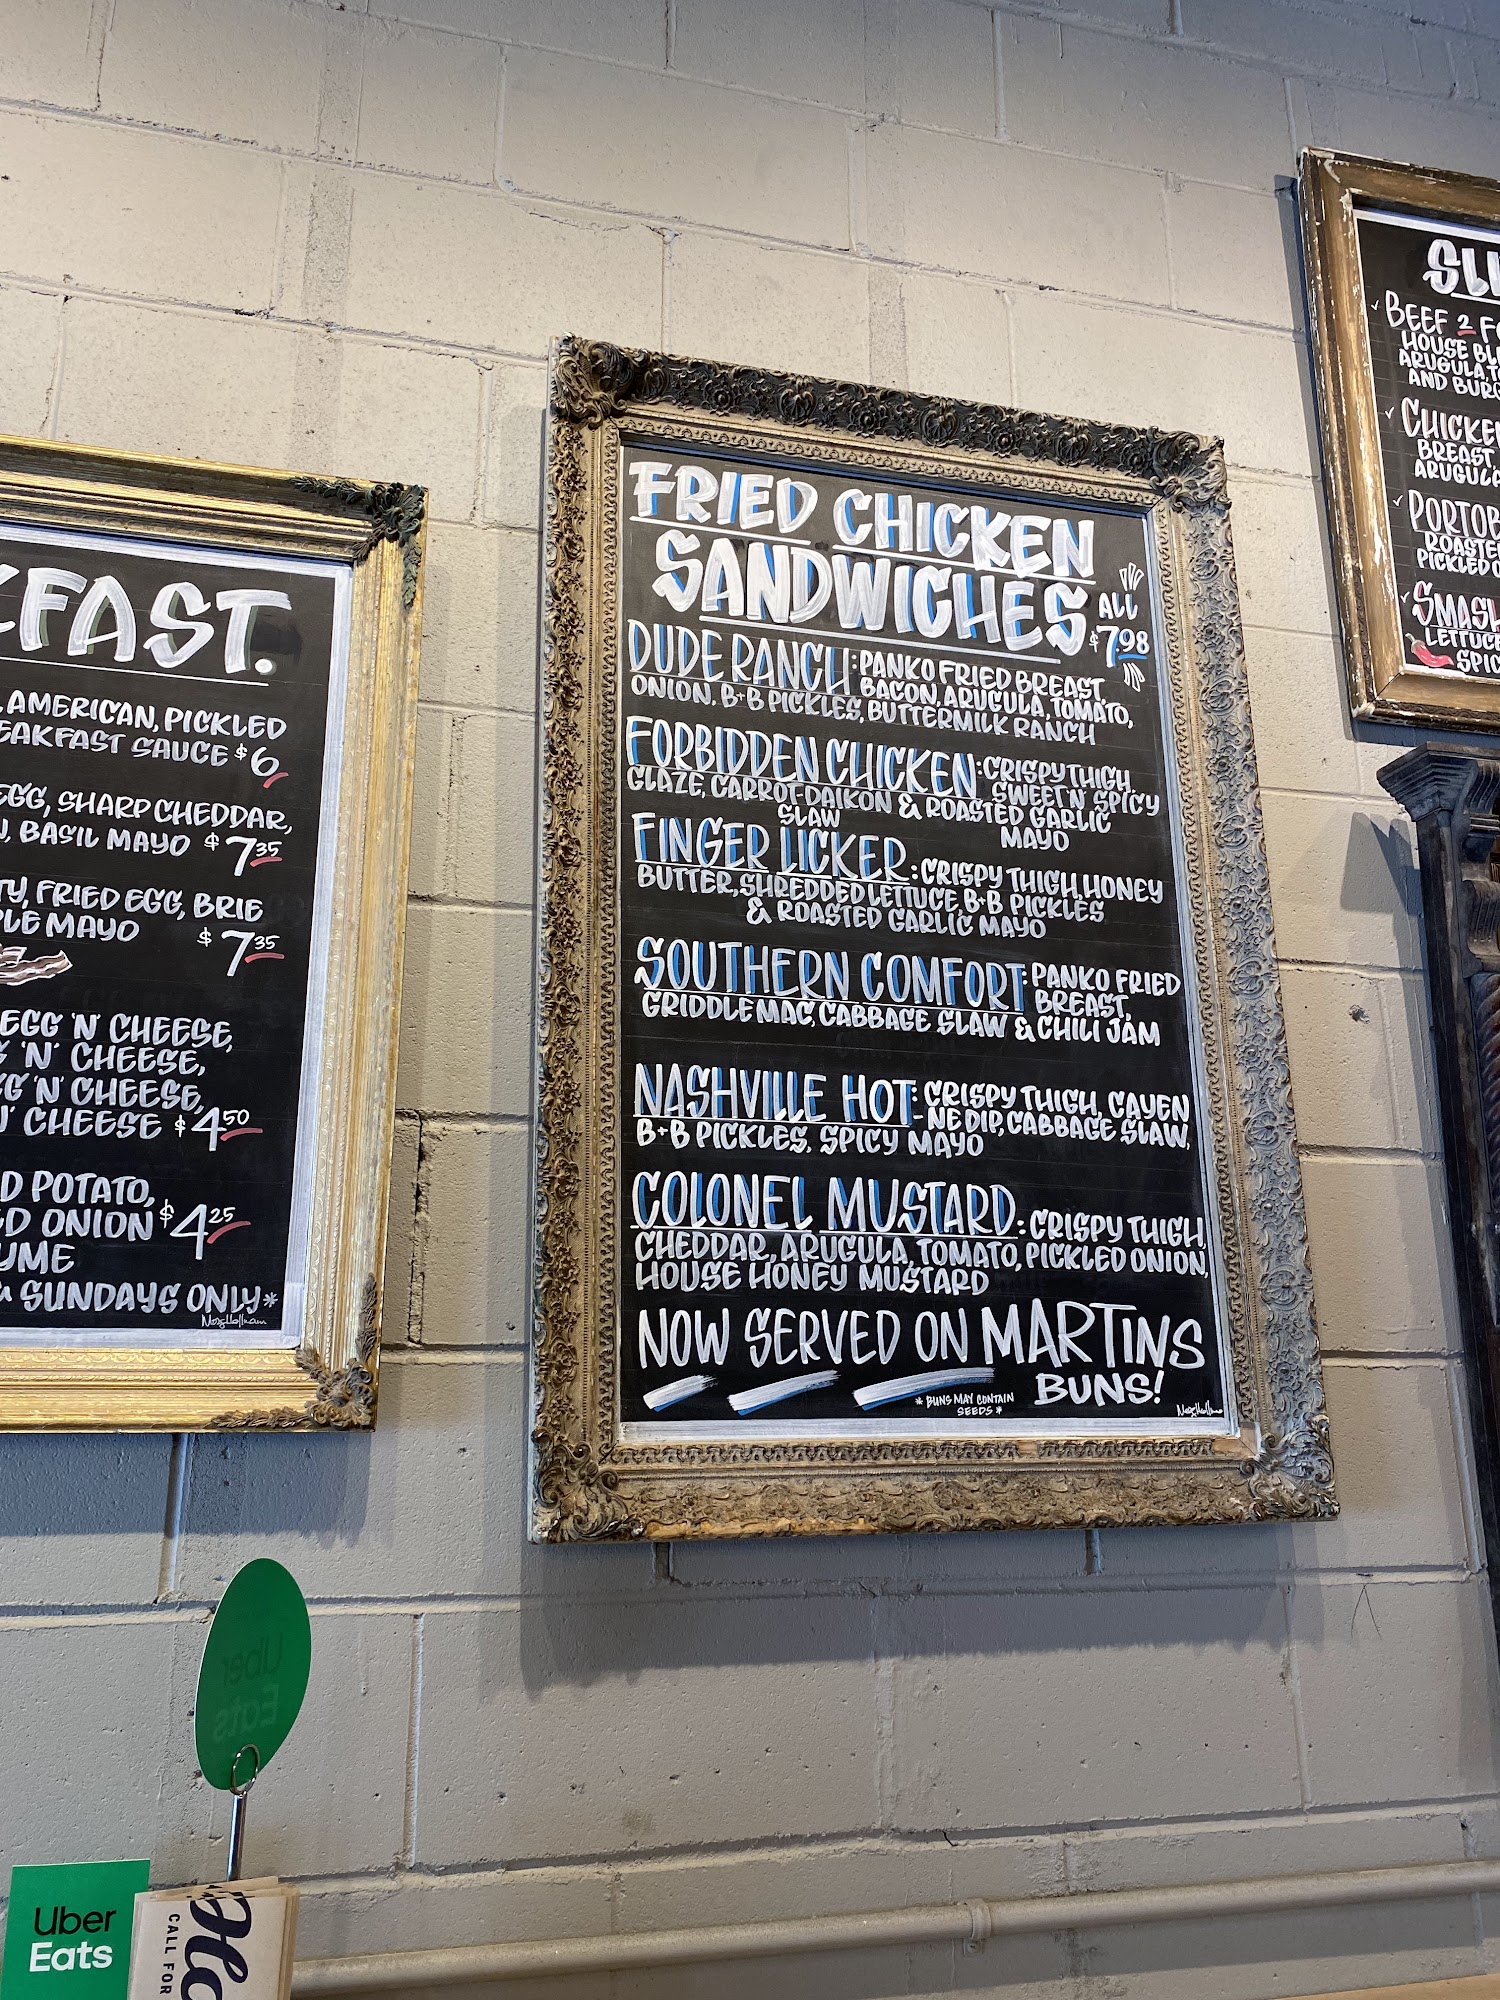 FAST.
, AMERICAN, PICKLED
EAKFAST SAUCE $6
EGG, SHARP CHEDDAR,
, BASIL MAYO $7.35
TY, FRIED EGG, BRIE
PLE MAYO $7.35
EGG 'N' CHEESE,
'N' CHEESE,
GG 'N' CHEESE,
N' CHEESE $4.50
D POTATO,
ED ONION $4.25
UME
& SUNDAYS ONLY*
FRIED CHICKEN
SANDWICHES ALL
$7.98
DUDE RANCH: PANKO FRIED BREAST,
BACON, ARUGULA, TOMATO,
ONION, B+B PICKLES, BUTTERMILK RANCH
FORBIDDEN CHICKEN: CRISPY THIGH,
SWEET 'N' SPICY
GLAZE, CARROT-DAIKON & ROASTED GARLIC
SLAW MAYO
FINGER LICKER: CRISPY THIGH, HONEY
BUTTER, SHREDDED LETTUCE B+B PICKLES
& ROASTED GARLIC MAYO
SOUTHERN COMFORT: PANKO FRIED
BREAST,
GRIDDLE MAC, CABBAGE SLAW & CHILI JAM
NASHVILLE HOT: CRISPY THIGH, CAYEN
-NE DIP, CABBAGE SLAW,
B+B PICKLES, SPICY MAYO
COLONEL MUSTARD: CRISPY THIGH,
CHEDDAR, ARUGULA, TOMATO, PICKLED ONION,
HOUSE HONEY MUSTARD
NOW SERVED ON MARTINS
BUNS!
*BUNS MAY CONTAIN
SEEDS*
SLI
BEEF 2 FO
HOUSE BL
ARUGULA, T
AND BURG
CHICKEN
BREAST
ARUGULA
PORTOB
ROASTE
PICKLED O
SMASH
LETTUCE
SPIC
Uber
Eats
Uber
Eats
CALL FOR